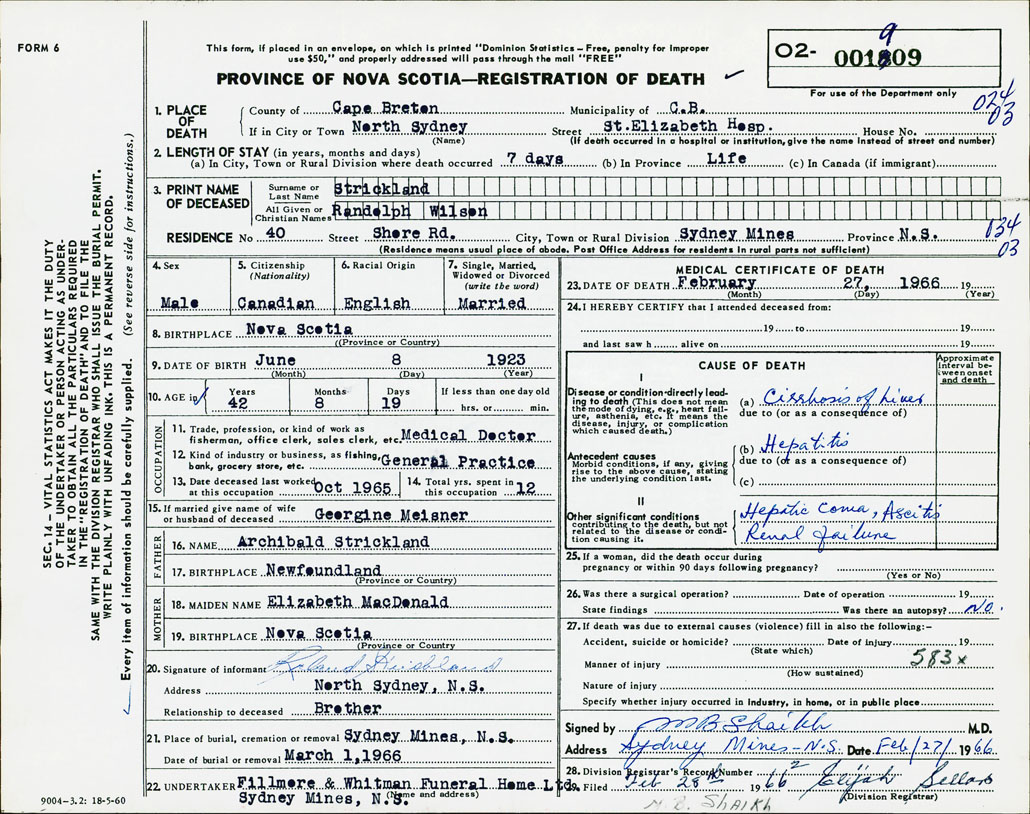 FORM 6
This form, if placed in an envelope, on which is printed "Dominion Statistics – Free, penalty for improper
use $50," and properly addressed will pass through the mail "FREE"
PROVINCE OF NOVA SCOTIA—REGISTRATION OF DEATH
9
02- 001809
For use of the Department only
024
03
1. PLACE OF DEATH
County of Cape Breton Municipality of C.B.
If in City or Town North Sydney Street St.Elizabeth Hosp. House No.
(Name) (If death occurred in a hospital or institution, give the name instead of street and number)
2. LENGTH OF STAY (in years, months and days)
(a) In City, Town or Rural Division where death occurred 7 days (b) In Province Life (c) In Canada (if immigrant)
3. PRINT NAME OF DECEASED
Surname or Last Name Strickland
All Given or Christian Names Randolph Wilson
RESIDENCE No 40 Street Shore Rd. City, Town or Rural Division Sydney Mines Province N.S.
034
03
(Residence means usual place of abode. Post Office Address for residents in rural parts not sufficient)
4. Sex
Male
5. Citizenship (Nationality)
Canadian
6. Racial Origin
English
7. Single, Married, Widowed or Divorced (write the word)
Married
8. BIRTHPLACE Nova Scotia
((Province or Country)
9. DATE OF BIRTH June 8 1923
(Month) (Day) (Year)
10. AGE in Years 42 Months 8 Days 19 If less than one day old hrs. or min.
OCCUPATION
11. Trade, profession, or kind of work as
fisherman, office clerk, sales clerk, etc. Medical Doctor
12. Kind of industry or business, as fishing,
bank, grocery store, etc. General Practice
13. Date deceased last worked
at this occupation Oct 1965
14. Total yrs. spent in
this occupation 12
15. If married give name of wife
or husband of deceased Georgine Meisner
FATHER
16. NAME Archibald Strickland
17. BIRTHPLACE Newfoundland
(Province or Country)
MOTHER
18. MAIDEN NAME Elizabeth MacDonald
19. BIRTHPLACE Nova Scotia
(Province or Country)
20. Signature of informant Roland Strickland
Address North Sydney, N.S.
Relationship to deceased Brother
21. Place of burial, cremation or removal Sydney Mines, N.S.
Date of burial or removal March 1,1966
22. UNDERTAKER Fillmore & Whitman Funeral Home Ltd.
(Name and address)
Sydney Mines, N.S.
MEDICAL CERTIFICATE OF DEATH
23. DATE OF DEATH February 27, 1966 19
(Month) (Day) (Year)
24. I HEREBY CERTIFY that I attended deceased from:
19 to 19
and last saw h alive on 19
CAUSE OF DEATH
Approximate interval between onset and death
I
Disease or condition directly leading to death (This does not mean the mode of dying, e.g., heart failure, asthenia, etc. It means the disease, injury, or complication which caused death.)
(a) Cirrhosis of Liver
due to (or as a consequence of)
Antecedent causes
Morbid conditions, if any, giving rise to the above cause, stating the underlying condition last.
(b) Hepatitis
due to (or as a consequence of)
(c)
II
Other significant conditions
contributing to the death, but not related to the disease or condition causing it.
Hepatic Coma, Ascitis
Renal failure
25. If a woman, did the death occur during
pregnancy or within 90 days following pregnancy?
(Yes or No)
26. Was there a surgical operation? Date of operation 19
State findings Was there an autopsy? No.
27. If death was due to external causes (violence) fill in also the following:–
Accident, suicide or homicide? Date of injury 19
(State which)
583x
Manner of injury
(How sustained)
Nature of injury
Specify whether injury occurred in industry, in home, or in public place
Signed by MB Shaikh M.D.
Address Sydney Mines-N.S. Date Feb/27/ 1966
28. Division Registrar's Record Number 2
29. Filed Feb 28th 1966 Elijah Sellars
(Division Registrar)
M.B. SHAIKH
SEC. 14 – VITAL STATISTICS ACT MAKES IT THE DUTY
OF THE UNDERTAKER OR PERSON ACTING AS UNDER-
TAKER TO OBTAIN ALL THE PARTICULARS REQUIRED
IN THE "REGISTRATION OF DEATH" AND TO FILE THE
SAME WITH THE DIVISION REGISTRAR WHO SHALL ISSUE THE BURIAL PERMIT.
WRITE PLAINLY WITH UNFADING INK. THIS IS A PERMANENT RECORD.
Every item of information should be carefully supplied. (See reverse side for instructions.)
9004–3.2: 18-5-60